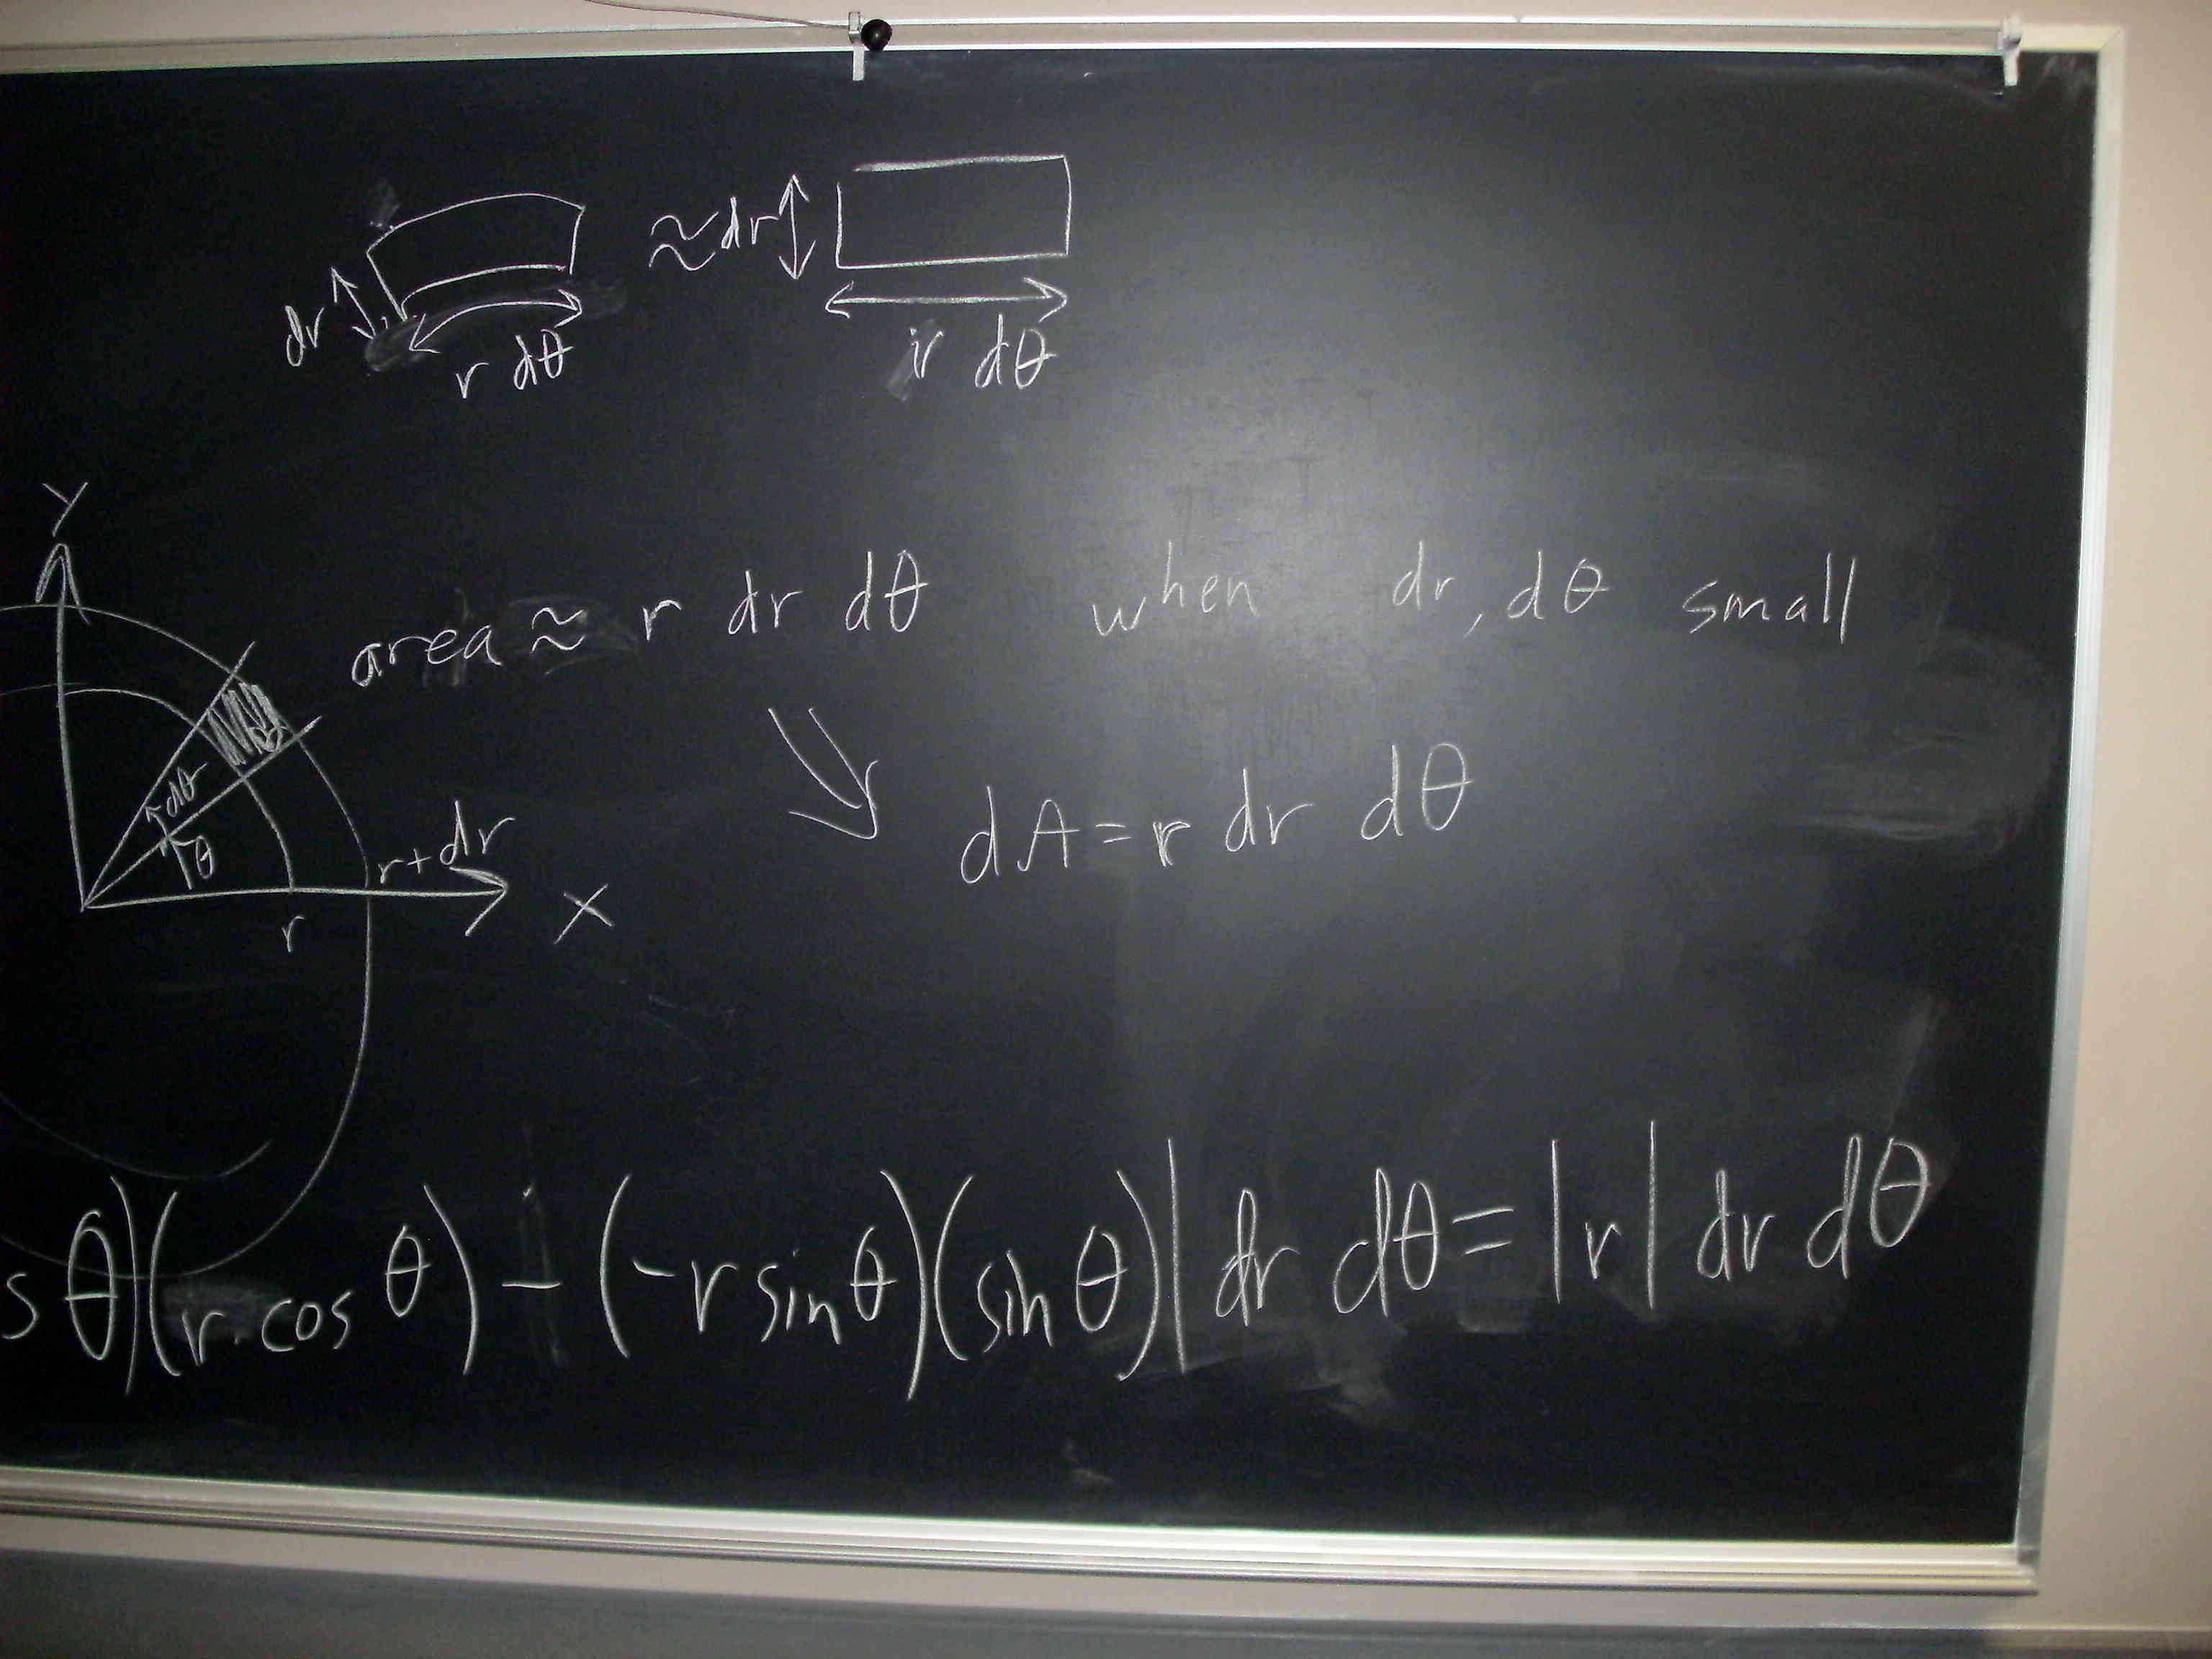 dr r dθ ≈ dr r dθ
Y
area ≈ r dr dθ when dr, dθ small
dθ
θ
r + dr
r
X
dA = r dr dθ
s θ)(r cos θ) - (-r sin θ)(sin θ)| dr dθ = |r| dr dθ